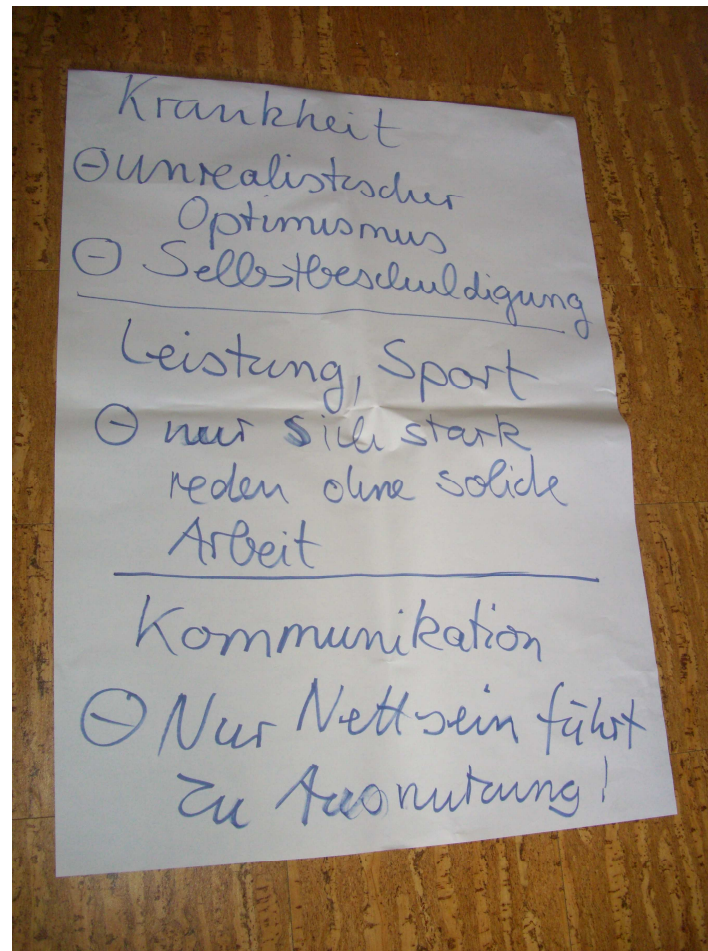 Krankheit
⊖ unrealistischer
Optimismus
⊖ Selbstbeschuldigung
Leistung, Sport
⊖ nur sich stark
reden ohne solide
Arbeit
Kommunikation
⊖ Nur Nettsein führt
zu Ausnutzung!